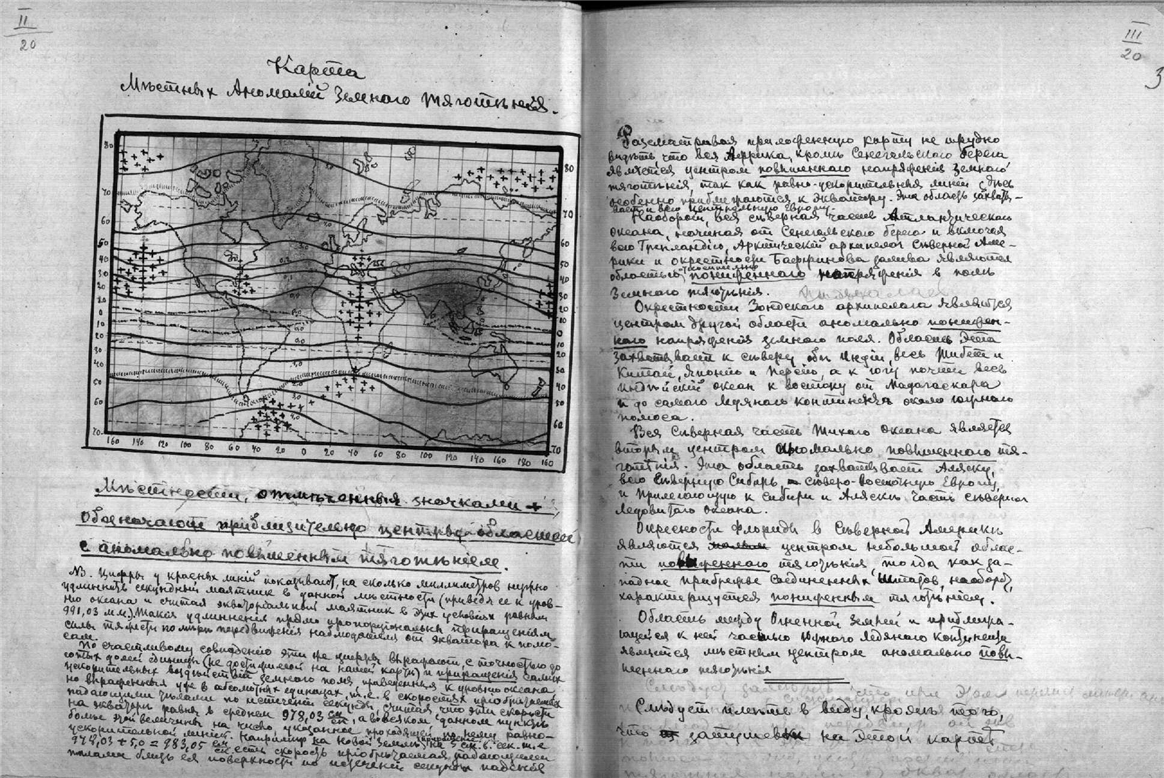 II
20
Карта
Мѣстных Аномалій Земного тяготѣнія.
80
70
60
50
40
30
20
10
0
10
20
30
40
50
60
70
80
70
60
50
40
30
20
10
0
10
20
30
40
50
60
70
160 140 120 100 80 60 40 20 0 20 40 60 80 100 120 140 160
Мѣстности, отмѣченныя значками +
обозначают приблизительно центры областей
с аномально повышенным тяготѣніем.
NB. Цифры у красных линій показывают, на сколько миллиметров нужно
удлинить секундный маятник в данной мѣстности (приведя ее к уров-
ню океана и считая экваторіальный маятник в этих условіях равным
991,03 м.м.) Такія удлиненія прямо пропорціональны приращеніям
силы тяжести по мѣрѣ передвиженія наблюдателя от экватора к полю-
сам.
По счастливому совпаденію эти же цифры выражают с точностью до
сотых долей единицы (не достижимой на нашей карте) и приращенія самих
ускорительных воздѣйствій земного поля приведенных к уровню океана
но выраженныя уже в абсолютных единицах, т.е. в скоростях пріобрѣтаемых
падающими тѣлами по истеченіи секунды, считая что эти скорости
на экваторѣ равны в среднем 978,03 см, а во всяком данном пунктѣ
больше этой величины на число указанное проходящей по нему равно-
ускорительной линіей. Например на Новой Земле на 5 см. в сек. т.е.
978,03 + 5,0 = 983,05 см есть скорость пріобрѣтаемая падающими
тѣлами близь ея поверхности по истеченіи секунды паденія
III
20
3
Разсматривая приложенную карту не трудно
видѣть что вся Африка, кромѣ Сенегальского берега
является центром повышенного напряженія земного
тяготѣнія, так как равно-ускорительныя линіи здѣсь
особенно приближаются к экватору. Эта область захваты-
вает и всю центральную Европу.
Наоборот, вся сѣверная часть Атлантического
океана, начиная от Сенегальского берега и включая
всю Гренландію, Арктическій архипелаг Сѣверной Аме-
рики и окрестности Баффинова залива являются
областью пониженного напряженія в поле
Земного тяготѣнія.
Окрестности Зондского архипелага являются
центром другой области аномально понижен-
ного напряженія земного поля. Область эта
захватывает к сѣверу обѣ Индіи, весь Тибет и
Китай, Японію и Персію, а к югу почти весь
Индійскій океан к востоку от Мадагаскара
и до самого Ледяного континента около южного
полюса.
Вся Сѣверная часть Тихого океана является
вторым центром аномально повышенного тя-
готѣнія. Эта область захватывает Аляску,
всю Сѣверную Сибирь, сѣверо-восточную Европу,
и прилегающую к Сибири и Аляскѣ часть Сѣверного
Ледовитого океана.
Окресности Флориды в Сѣверной Америкѣ
являются центром небольшой облас-
ти повышенного тяготѣнія тогда как за-
падное прибрежье Соединенных Штатов, наоборот,
характеризуется пониженным тяготѣніем.
Область между Огненной Землей и приближа-
ющейся к ней частью Южного Ледяного Континента
является мѣстным центром аномально повы-
шенного тяготѣнія
Слѣдует имѣть в виду, кромѣ того,
что затушевки на этой картѣ